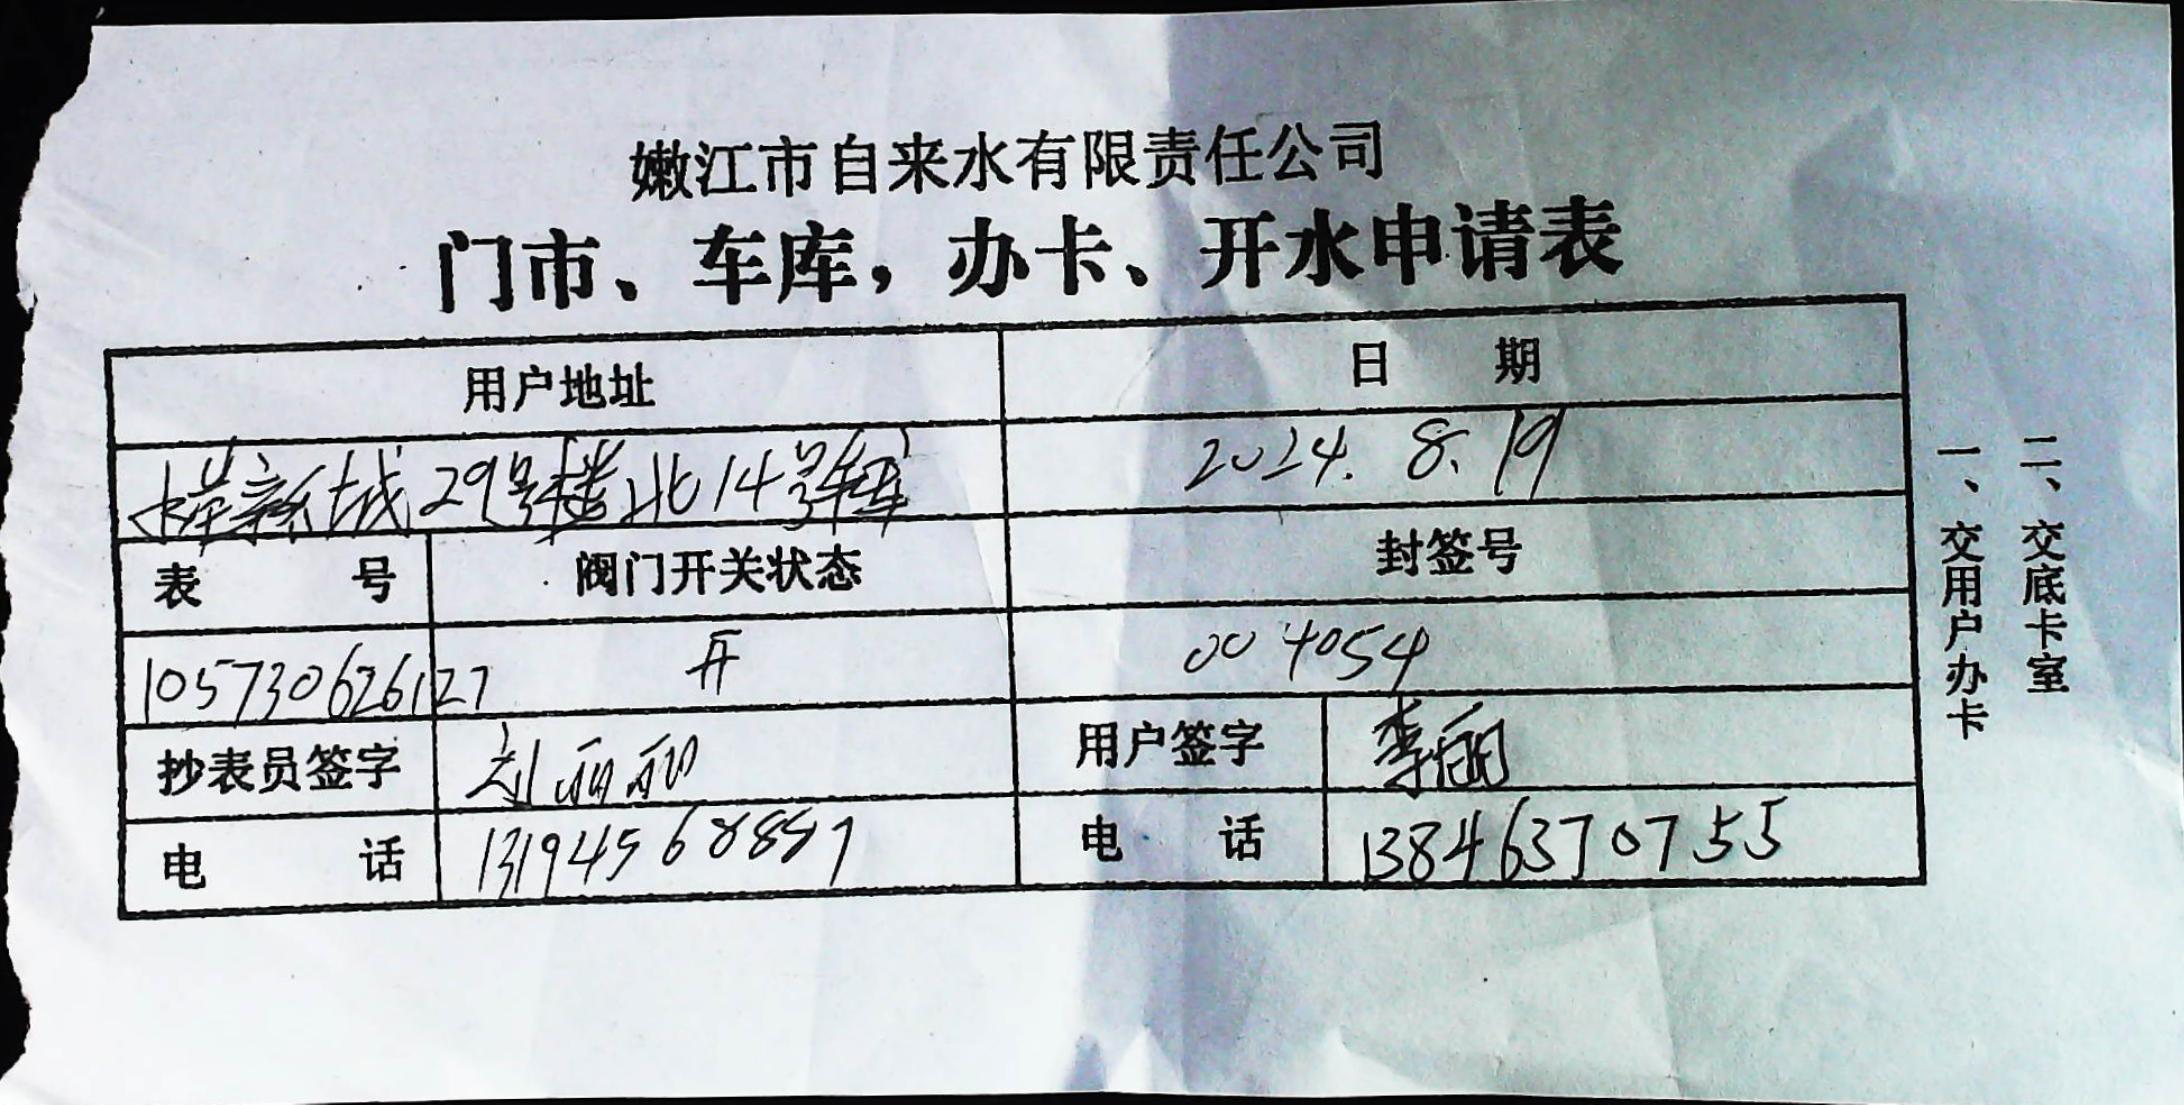 嫩江市自来水有限责任公司
门市、车库，办卡、开水申请表
用户地址 日 期
新城29号楼北14号车库 2024.8.19
表 号 阀门开关状态 封签号
105730626127 开 004054
抄表员签字 刘丽丽 用户签字 李丽
电 话 13194568887 电 话 13846370755
一、交用户办卡
二、交底卡室